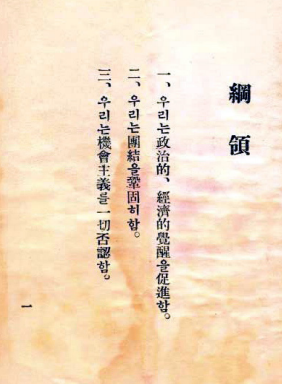 綱領
一、우리는政治的、經濟的覺醒을促進함。
二、우리는團結을鞏固히함。
三、우리는機會主義를一切否認함。
一